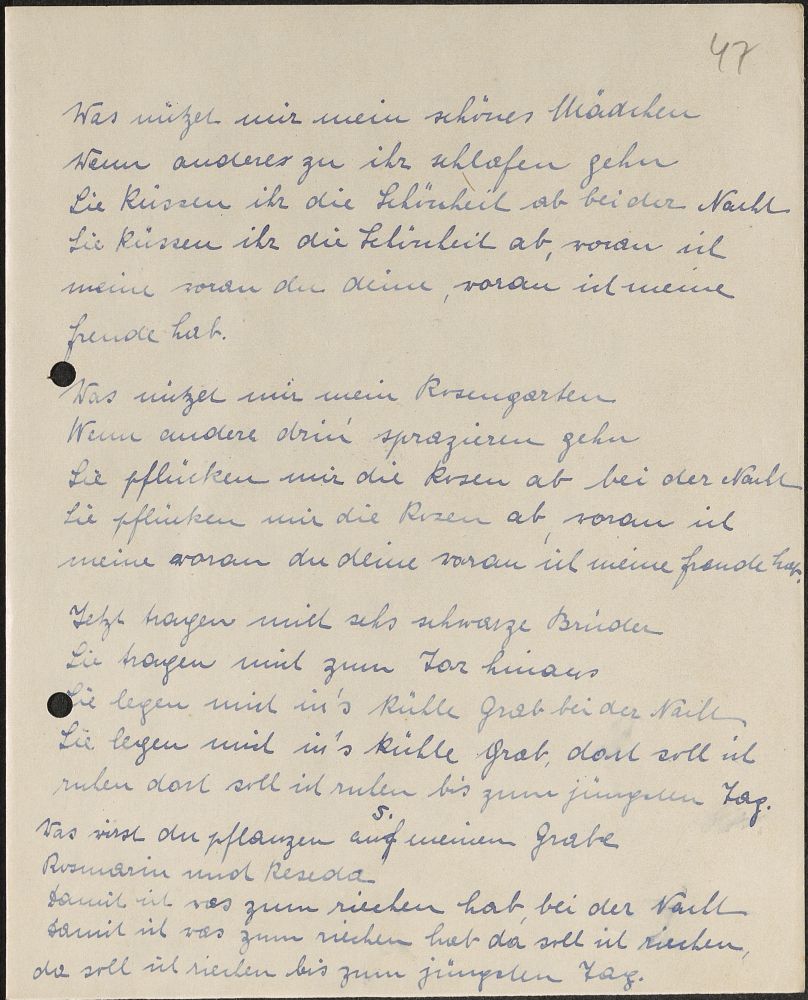 47
Was nützet mir mein schönes Mädchen
Wenn anderes zu ihr schlafen gehn
Sie küssen ihr die Schönheit ab bei der Nacht
Sie küssen ihr die Schönheit ab, woran ich
meine woran du deine, woran ich meine
freude hab.
Was nützet mir mein Rosengarten
Wenn andere drin' sprazieren gehn
Sie pflücken mir die Rosen ab bei der Nacht
Sie pflücken mir die Rosen ab, woran ich
meine woran du deine woran ich meine freude hab.
Jetzt tragen mich sehs schwarze Brüder
Sie tragen mich zum Tor hinaus
Sie legen mich in's kühle Grab bei der Nacht
Sie legen mich in's kühle Grab, dort soll ich
ruhen dort soll ich ruhen bis zum jüngsten Tag.
5.
Was wirst du pflanzen auf meinem Grabe
Rosmarin und Reseda
Damit ich was zum riechen hab, bei der Nacht
Damit ich was zum riechen hab da soll ich riechen,
da soll ich riechen bis zum jüngsten Tag.